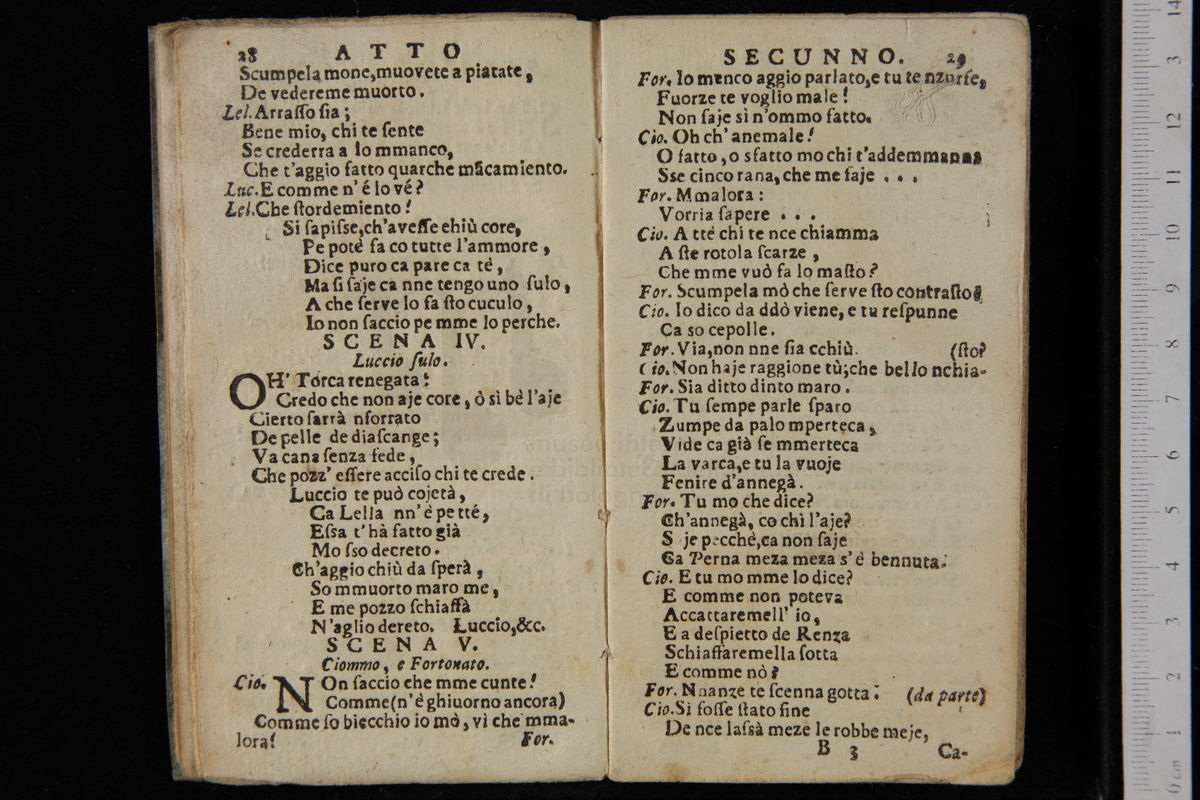 28 ATTO
Scumpela mone, muovete a piatate,
De vedereme muorto.
Lel. Arraſſo ſia;
Bene mio, chi te ſente
Se crederra a lo mmanco,
Che t'aggio fatto quarche mãcamiento.
Luc. E comme n'é lo vé?
Lel. Che ſtordemiento!
Si ſapiſse, ch'aveſſe chiù core,
Pe potè fa co tutte l'ammore,
Dice puro ca pare ca tè,
Ma ſi ſaje ca nne tengo uno ſulo,
A che ſerve lo fa ſto cuculo,
Io non ſaccio pe mme lo perche.
SCENA IV.
Luccio ſulo.
OH' Torca renegata!
Credo che non aje core, ò sì bè l'aje
Cierto ſarrà nforrato
De pelle de diaſcange;
Va cana ſenza fede,
Che pozz' eſſere acciſo chi te crede.
Luccio te può cojetà,
Ca Lella nn'è pe tté,
Eſsa t'hà fatto già
Mo ſso decreto.
Ch'aggio chiù da ſperà,
So mmuorto maro me,
E me pozzo ſchiaffà
N'aglio dereto. Luccio, &c.
SCENA V.
Ciommo, e Fortonato.
Cio. NOn ſaccio che mme cunte!
Comme (n'è ghiuorno ancora)
Comme ſo biecchio io mò, vì che mma-
lora!
For.
SECUNNO. 29
For. Io manco aggio parlato, e tu te nzurfe,
Fuorze te voglio male!
Non ſaje sì n'ommo fatto.
Cio. Oh ch' anemale!
O fatto, o sfatto mo chi t'addemmanna
Sse cinco rana, che me faje . . .
For. Mmalora:
Vorria ſapere . . .
Cio. A tté chi te nce chiamma
A ſte rotola ſcarze,
Che mme vuò fa lo maſto?
For. Scumpela mò che ſerve ſto contraſto?
Cio. Io dico da ddò viene, e tu reſpunne
Ca so cepolle.
For. Via, non nne ſia cchiù. (ſto?
Cio. Non haje raggione tù; che bello nchia-
For. Sia ditto dinto maro.
Cio. Tu ſempe parle ſparo
Zumpe da palo mperteca,
Vide ca già ſe mmerteca
La varca, e tu la vuoje
Fenire d'annegà.
For. Tu mo che dice?
Ch'annegà, co chì l'aje?
S je pecchè, ca non ſaje
Ca Perna meza meza s'è bennuta.
Cio. E tu mo mme lo dice?
E comme non poteva
Accattaremell' io,
E a deſpietto de Renza
Schiaffaremella ſotta
E comme nò?
For. Nnanze te ſcenna gotta. (da parte)
Cio. Si foſſe ſtato fine
De nce laſsà meze le robbe meje,
B 3 Ca-